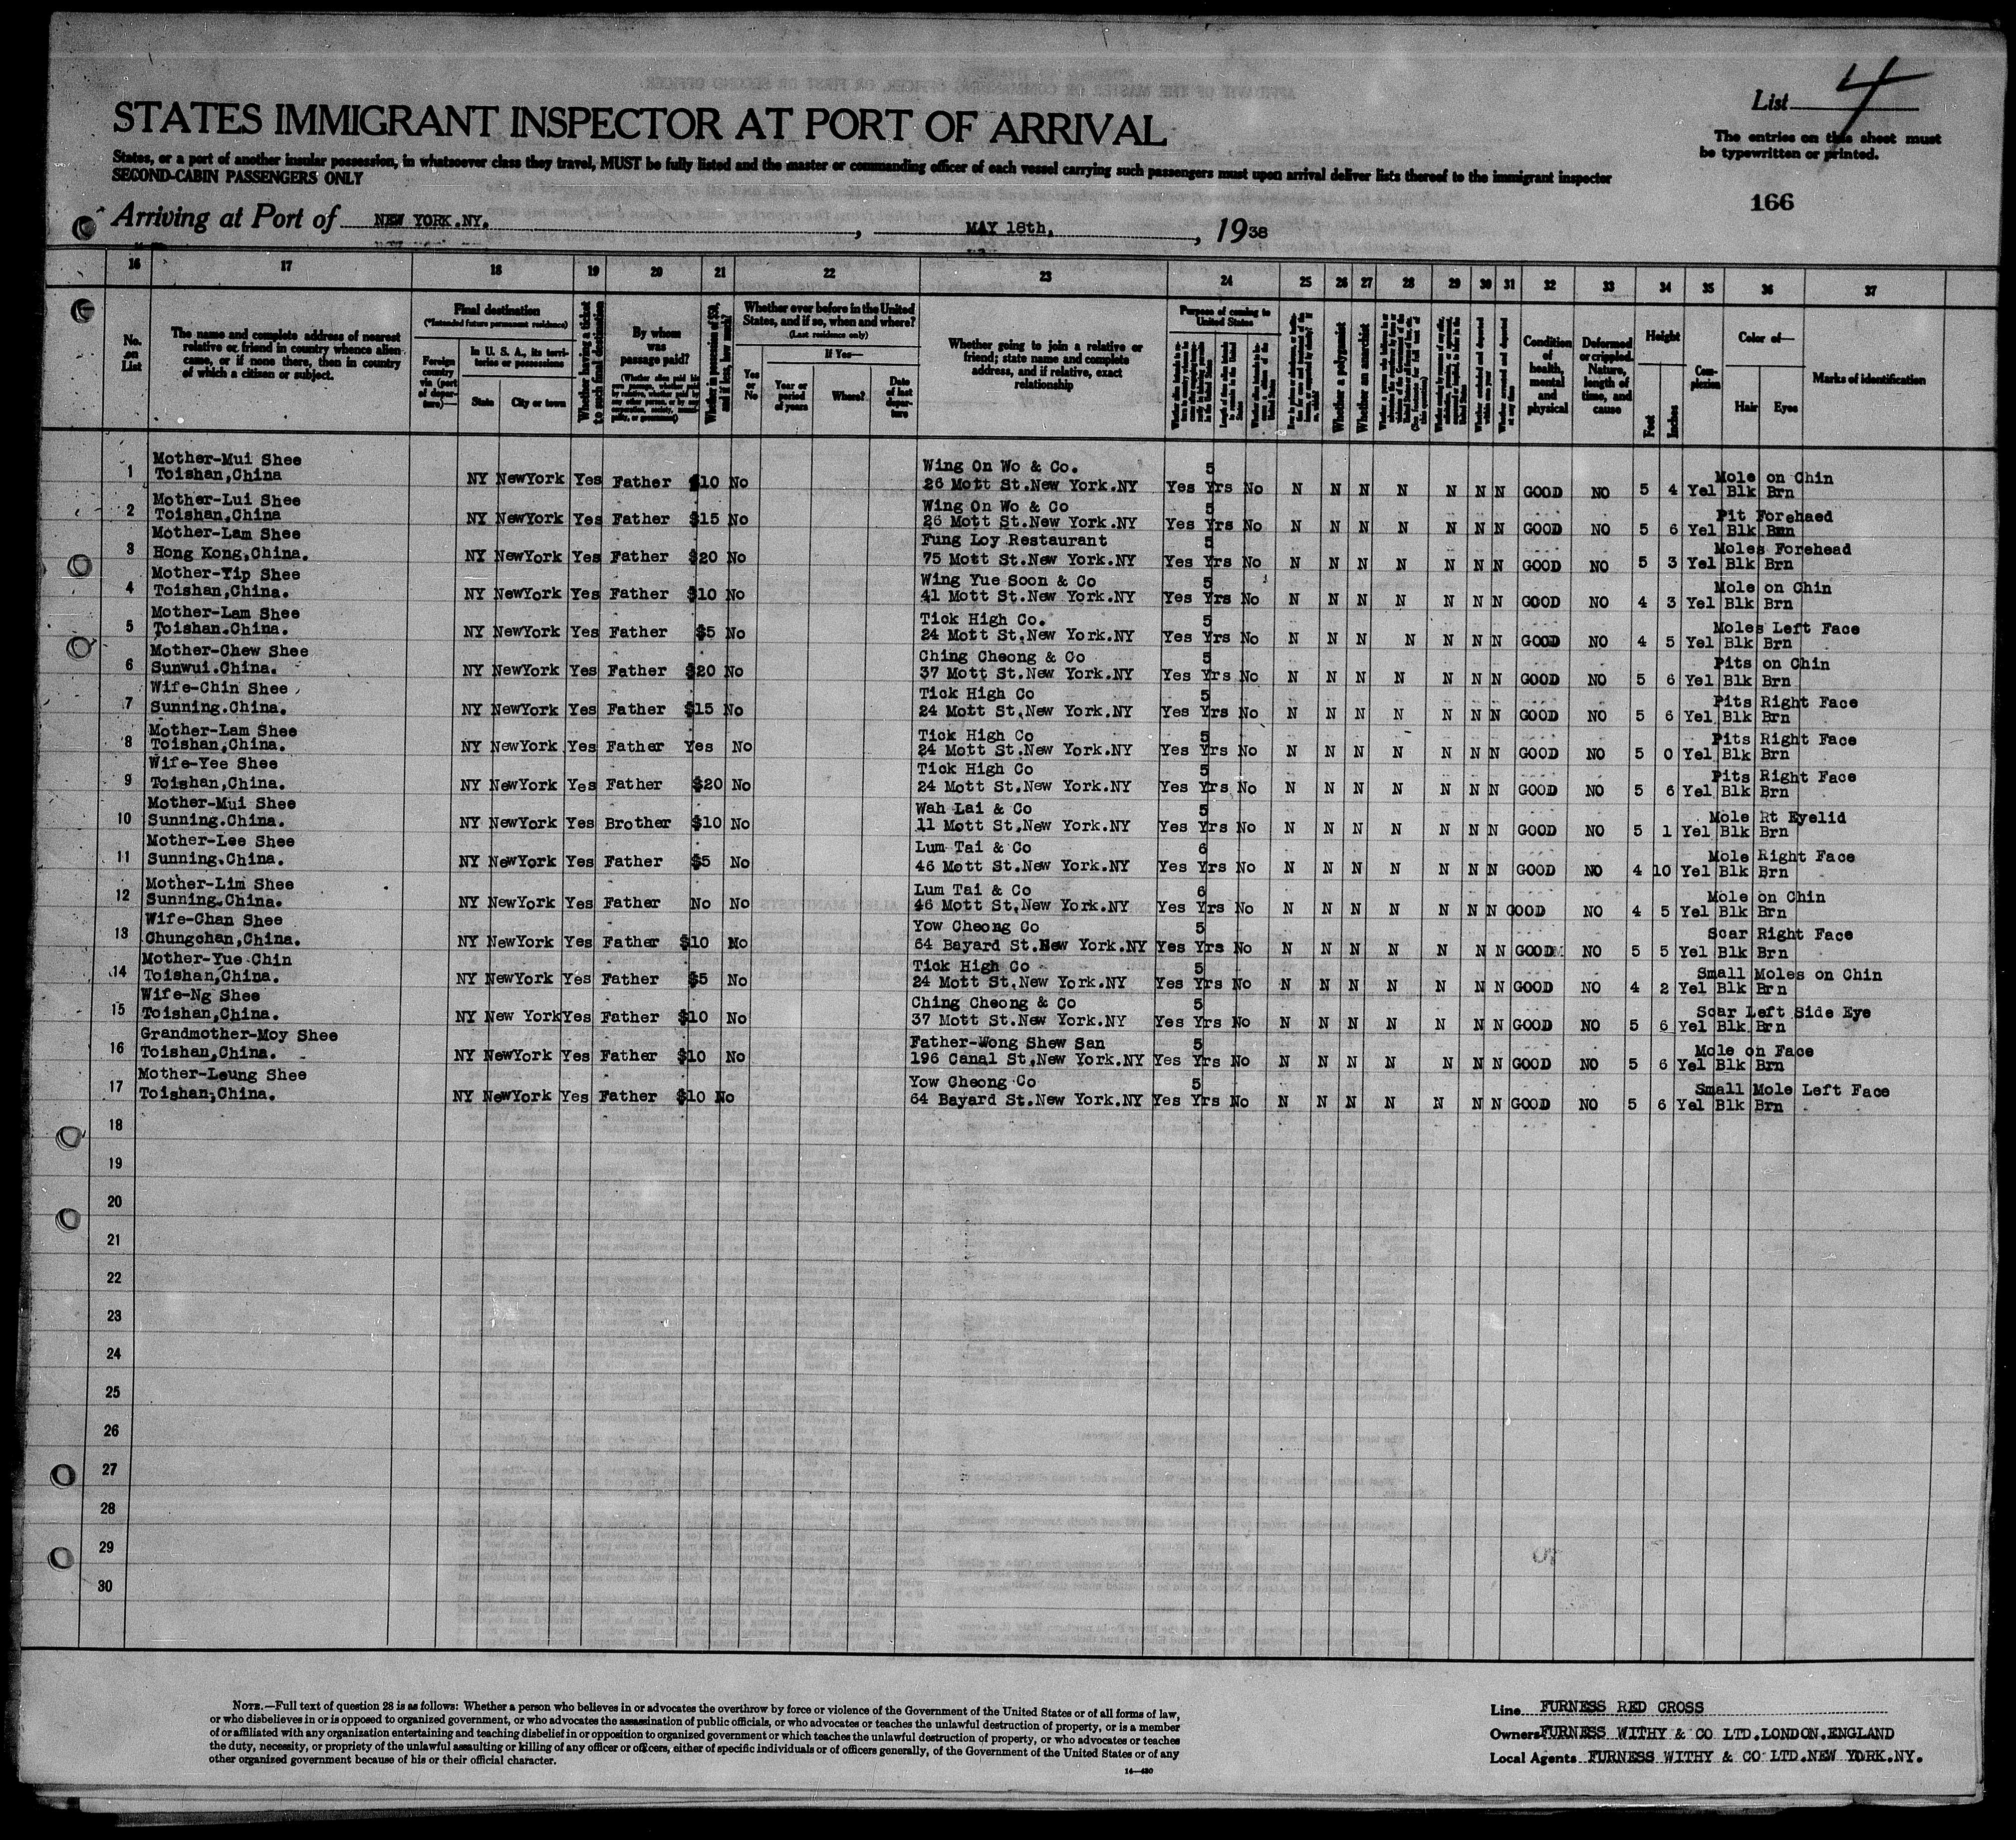 List 4
STATES IMMIGRANT INSPECTOR AT PORT OF ARRIVAL
The entries on this sheet must
be typewritten or printed.
States, or a port of another insular possession, in whatsoever class they travel, MUST be fully listed and the master or commanding officer of each vessel carrying such passengers must upon arrival deliver lists thereof to the immigrant inspector
SECOND-CABIN PASSENGERS ONLY
166
Arriving at Port of NEW YORK.NY. , MAY 18th, , 1938
16 17 18 19 20 21 22 23 24 25 26 27 28 29 30 31 32 33 34 35 36 37
No. on List
The name and complete address of nearest
relative or friend in country whence alien
came, or if none there, then in country
of which a citizen or subject.
Final destination
(*Intended future permanent residence)
Foreign country via (port of departure)—
In U. S. A., its territories or possessions
State
City or town
Whether having a ticket to such final destination
By whom was passage paid?
Whether in possession of $50, and if less, how much?
Whether ever before in the United
States, and if so, when and where?
(Last residence only)
Yes or No
If Yes—
Year or period of years
Where?
Date of last departure
Whether going to join a relative or
friend; state name and complete
address, and if relative, exact
relationship
Purpose of coming to United States
Whether a polygamist
Whether an anarchist
Condition of health, mental and physical
Deformed or crippled. Nature, length of time, and cause
Height
Feet
Inches
Complexion
Color of—
Hair
Eyes
Marks of identification
1 Mother-Mui Shee Toishan,China NY NewYork Yes Father $10 No Wing On Wo & Co. 26 Mott St.New York.NY Yes 5 Yrs No N N N N N N N GOOD NO 5 4 Yel Blk Brn Mole on Chin
2 Mother-Lui Shee Toishan,China NY NewYork Yes Father $15 No Wing On Wo & Co 26 Mott St.New York.NY Yes 5 Yrs No N N N N N N N GOOD NO 5 6 Yel Blk Brn Pit Forehaed
3 Mother-Lam Shee Hong Kong,China. NY NewYork Yes Father $20 No Fung Loy Restaurant 75 Mott St.New York.NY Yes 5 Yrs No N N N N N N N GOOD NO 5 3 Yel Blk Brn Moles Forehead
4 Mother-Yip Shee Toishan,China. NY NewYork Yes Father $10 No Wing Yue Soon & Co 41 Mott St.New York.NY Yes 5 Yrs No N N N N N N N GOOD NO 4 3 Yel Blk Brn Mole on Chin
5 Mother-Lam Shee Toishan.China. NY NewYork Yes Father $5 No Tick High Co. 24 Mott St.New York.NY Yes 5 Yrs No N N N N N N N GOOD NO 4 5 Yel Blk Brn Moles Left Face
6 Mother-Chew Shee Sunwui.China. NY NewYork Yes Father $20 No Ching Cheong & Co 37 Mott St.New York.NY Yes 5 Yrs No N N N N N N N GOOD NO 5 6 Yel Blk Brn Pits on Chin
7 Wife-Chin Shee Sunning.China. NY NewYork Yes Father $15 No Tick High Co 24 Mott St.New York.NY Yes 5 Yrs No N N N N N N N GOOD NO 5 6 Yel Blk Brn Pits Right Face
8 Mother-Lam Shee Toishan,China. NY NewYork Yes Father Yes No Tick High Co 24 Mott St.New York.NY Yes 5 Yrs No N N N N N N N GOOD NO 5 0 Yel Blk Brn Pits Right Face
9 Wife-Yee Shee Toishan,China. NY NewYork Yes Father $20 No Tick High Co 24 Mott St.New York.NY Yes 5 Yrs No N N N N N N N GOOD NO 5 6 Yel Blk Brn Pits Right Face
10 Mother-Mui Shee Sunning.China. NY NewYork Yes Brother $10 No Wah Lai & Co 11 Mott St.New York.NY Yes 5 Yrs No N N N N N N N GOOD NO 5 1 Yel Blk Brn Mole Rt Eyelid
11 Mother-Lee Shee Sunning.China. NY NewYork Yes Father $5 No Lum Tai & Co 46 Mott St.New York.NY Yes 6 Yrs No N N N N N N N GOOD NO 4 10 Yel Blk Brn Mole Right Face
12 Mother-Lim Shee Sunning.China. NY NewYork Yes Father No No Lum Tai & Co 46 Mott St.New York.NY Yes 6 Yrs No N N N N N N N GOOD NO 4 5 Yel Blk Brn Mole on Chin
13 Wife-Chan Shee Chungchan,China. NY NewYork Yes Father $10 No Yow Cheong Co 64 Bayard St.New York.NY Yes 5 Yrs No N N N N N N N GOOD NO 5 5 Yel Blk Brn Scar Right Face
14 Mother-Yue Chin Toishan,China. NY NewYork Yes Father $5 No Tick High Co 24 Mott St.New York.NY Yes 5 Yrs No N N N N N N N GOOD NO 4 2 Yel Blk Brn Small Moles on Chin
15 Wife-Ng Shee Toishan,China. NY New York Yes Father $10 No Ching Cheong & Co 37 Mott St.New York.NY Yes 5 Yrs No N N N N N N N GOOD NO 5 6 Yel Blk Brn Scar Left Side Eye
16 Grandmother-Moy Shee Toishan,China. NY NewYork Yes Father $10 No Father-Wong Shew San 196 Canal St.New York.NY Yes 5 Yrs No N N N N N N N GOOD NO 5 6 Yel Blk Brn Mole on Face
17 Mother-Leung Shee Toishan,China. NY NewYork Yes Father $10 No Yow Cheong Co 64 Bayard St.New York.NY Yes 5 Yrs No N N N N N N N GOOD NO 5 6 Yel Blk Brn Small Mole Left Face
18
19
20
21
22
23
24
25
26
27
28
29
30
NOTE.—Full text of question 28 is as follows: Whether a person who believes in or advocates the overthrow by force or violence of the Government of the United States or of all forms of law,
or who disbelieves in or is opposed to organized government, or who advocates the assassination of public officials, or who advocates or teaches the unlawful destruction of property, or is a member
of or affiliated with any organization entertaining and teaching disbelief in or opposition to organized government or which teaches the unlawful destruction of property, or who advocates or teaches
the duty, necessity, or propriety of the unlawful assaulting or killing of any officer or officers, either of specific individuals or of officers generally, of the Government of the United States or of any
other organized government because of his or their official character.
14—430
Line FURNESS RED CROSS
Owners FURNESS WITHY & CO LTD.LONDON.ENGLAND
Local Agents FURNESS WITHY & CO LTD.NEW YORK.NY.